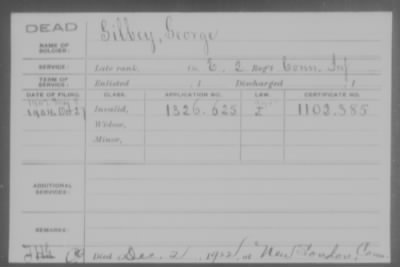 DEAD
NAME OF SOLDIER: Gilbey, George
SERVICE: Late rank, in E, 2 Reg't Conn. Inf
TERM OF SERVICE: Enlisted , 1 Discharged , 1
DATE OF FILING. CLASS. APPLICATION NO. LAW. CERTIFICATE NO.
1904 Oct 27 Invalid, 1326.625 1102.385
Widow,
Minor,
ADDITIONAL SERVICES:
REMARKS:
Died Dec. 21, at New London, Conn